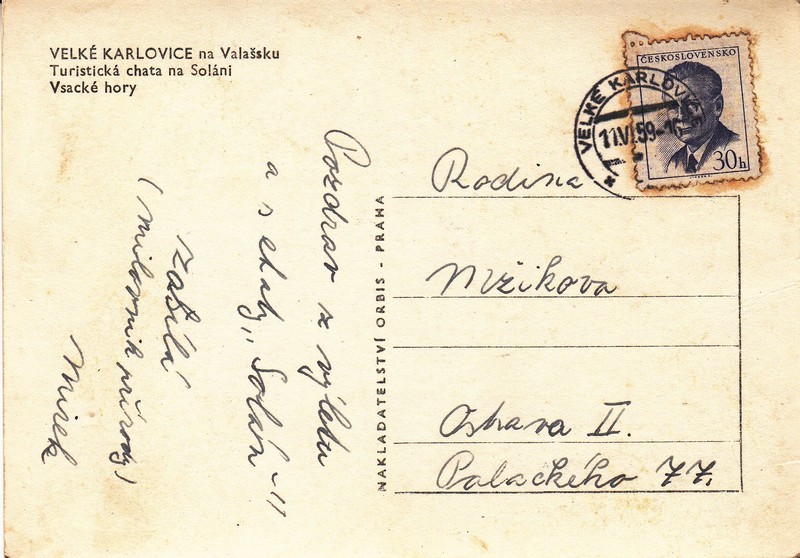 VELKÉ KARLOVICE na Valašsku
Turistická chata na Soláni
Vsacké hory
Pozdrav z výletu
a s chaty „Soláň"
zasílá
(milovník přírody)
Mirek
NAKLADATELSTVÍ ORBIS - PRAHA
ČESKOSLOVENSKO
30h
VELKÉ KARLOVICE
11.VI.59-16
Rodina
Mžikova
Ostrava II.
Palackého 77.